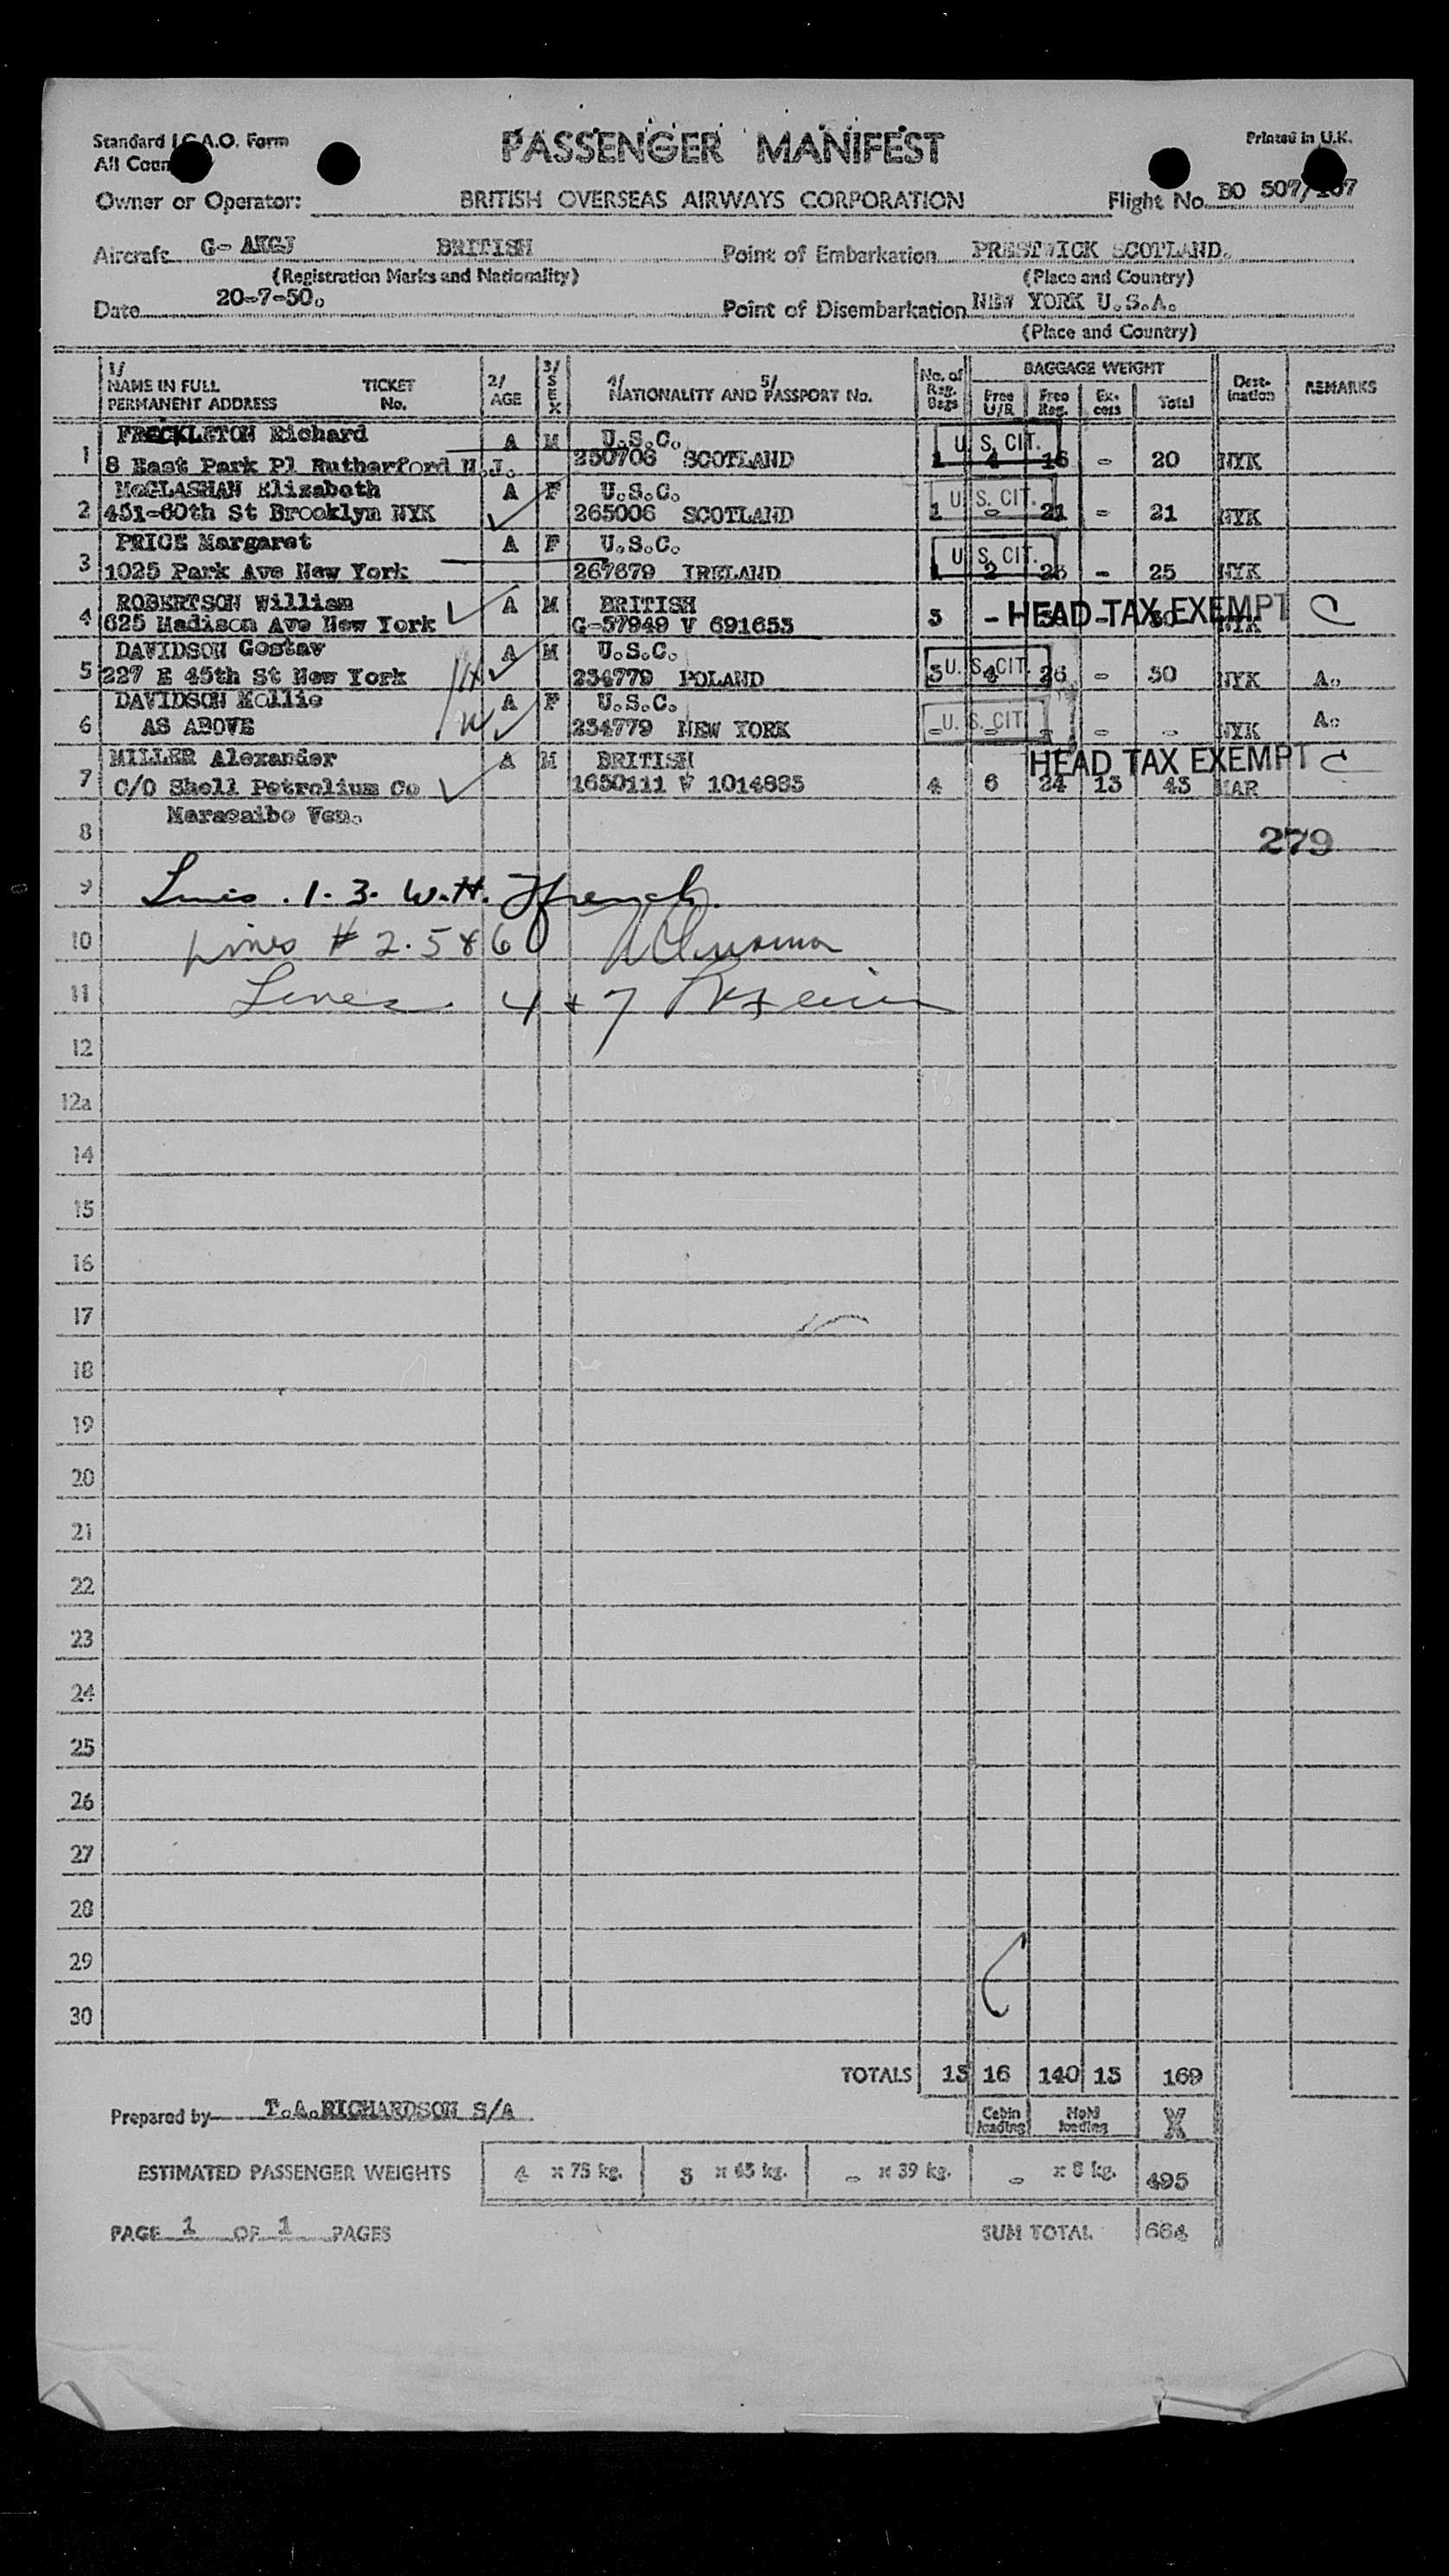 Standard I.C.A.O. Form
PASSENGER MANIFEST
Printed in U.K.
All Coun
Owner or Operator: BRITISH OVERSEAS AIRWAYS CORPORATION Flight No. BO 507/
Aircraft G- AKGJ BRITISH Point of Embarkation PRESTWICK SCOTLAND.
(Registration Marks and Nationality) (Place and Country)
Date 20-7-50. Point of Disembarkation NEW YORK U.S.A.
(Place and Country)
1/ NAME IN FULL PERMANENT ADDRESS TICKET No. 2/ AGE 3/ SEX 4/ NATIONALITY AND 5/ PASSPORT No. No. of Reg. Bags BAGGAGE WEIGHT Free U/R Free Reg. Ex-cess Total Dest-ination REMARKS
FRECKLETON Richard A M U.S.C. U.S. CIT.
1 8 East Park Pl Rutherford N.J. 250706 SCOTLAND 1 4 16 - 20 NYK
McGLASHAN Elizabeth A F U.S.C. U.S. CIT.
2 451-60th St Brooklyn NYK 265006 SCOTLAND 1 - 21 - 21 NYK
PRICE Margaret A F U.S.C. U.S. CIT.
3 1025 Park Ave New York 267679 IRELAND 1 2 23 - 25 NYK
ROBERTSON William A M BRITISH HEAD TAX EXEMPT C
4 625 Madison Ave New York G-57949 V 691653 3 - 30 - 30 NYK
DAVIDSON Gostav A M U.S.C. U.S. CIT.
5 227 E 45th St New York 234779 POLAND 3 4 26 - 30 NYK A.
DAVIDSON Mollie A F U.S.C. U.S. CIT.
6 AS ABOVE 234779 NEW YORK - - - - - NYK A.
MILLER Alexander A M BRITISH HEAD TAX EXEMPT C
7 C/O Shell Petrolium Co 1650111 V 1014883 4 6 24 13 43 MAR
Maracaibo Ven.
8 279
9 Lines . 1. 3. W.H. Ffrench.
10 Lines # 2. 5 & 6
11 Lines 4 + 7
12
12a
14
15
16
17
18
19
20
21
22
23
24
25
26
27
28
29
30
TOTALS 13 16 140 13 169
Prepared by T.A.RICHARDSON S/A Cabin loading Hold loading
ESTIMATED PASSENGER WEIGHTS 4 x 75 kg. 3 x 65 kg. - x 39 kg. - x 8 kg. 495
PAGE 1 OF 1 PAGES SUM TOTAL 664